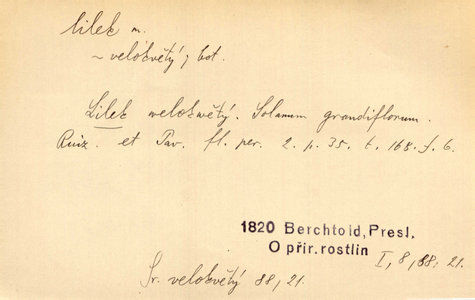 lilek m.
~ velokvětý; bot.
Lilek welokwětý. Solanum grandiflorum.
Ruiz. et Pav. fl. per. 2. p. 35. t. 168. f. 6.
1820 Berchtold, Presl.
O přir. rostlin
I, 8, 88, 21.
Sr. velokvětý 88, 21.